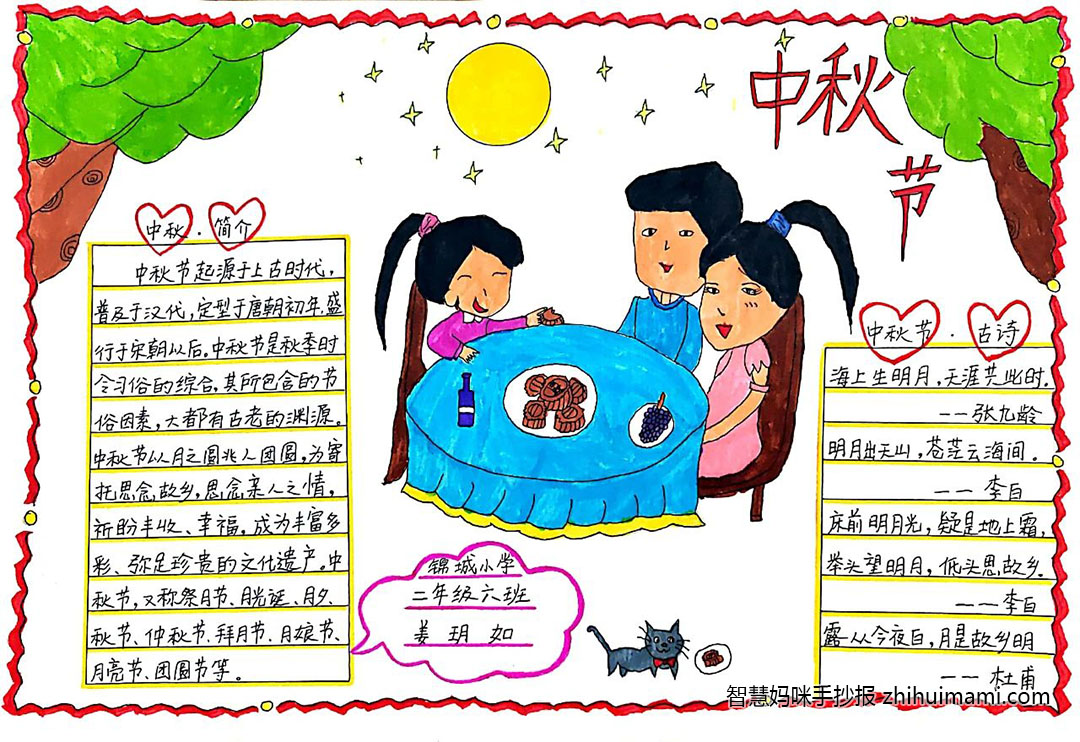 中秋
节
中秋·简介
中秋节起源于上古时代，
普及于汉代，定型于唐朝初年，盛
行于宋朝以后。中秋节是秋季时
令习俗的综合，其所包含的节
俗因素，大都有古老的渊源。
中秋节以月之圆兆人团圆，为寄
托思念故乡，思念亲人之情，
祈盼丰收、幸福，成为丰富多
彩、弥足珍贵的文化遗产。中
秋节，又称祭月节、月光诞、月夕、
秋节、仲秋节、拜月节、月娘节、
月亮节、团圆节等。
锦城小学
二年级六班
姜玥如
中秋节·古诗
海上生明月，天涯共此时.
——张九龄
明月出天山，苍茫云海间.
——李白
床前明月光，疑是地上霜，
举头望明月，低头思故乡.
——李白
露从今夜白，月是故乡明
——杜甫
智慧妈咪手抄报 zhihuimami.com